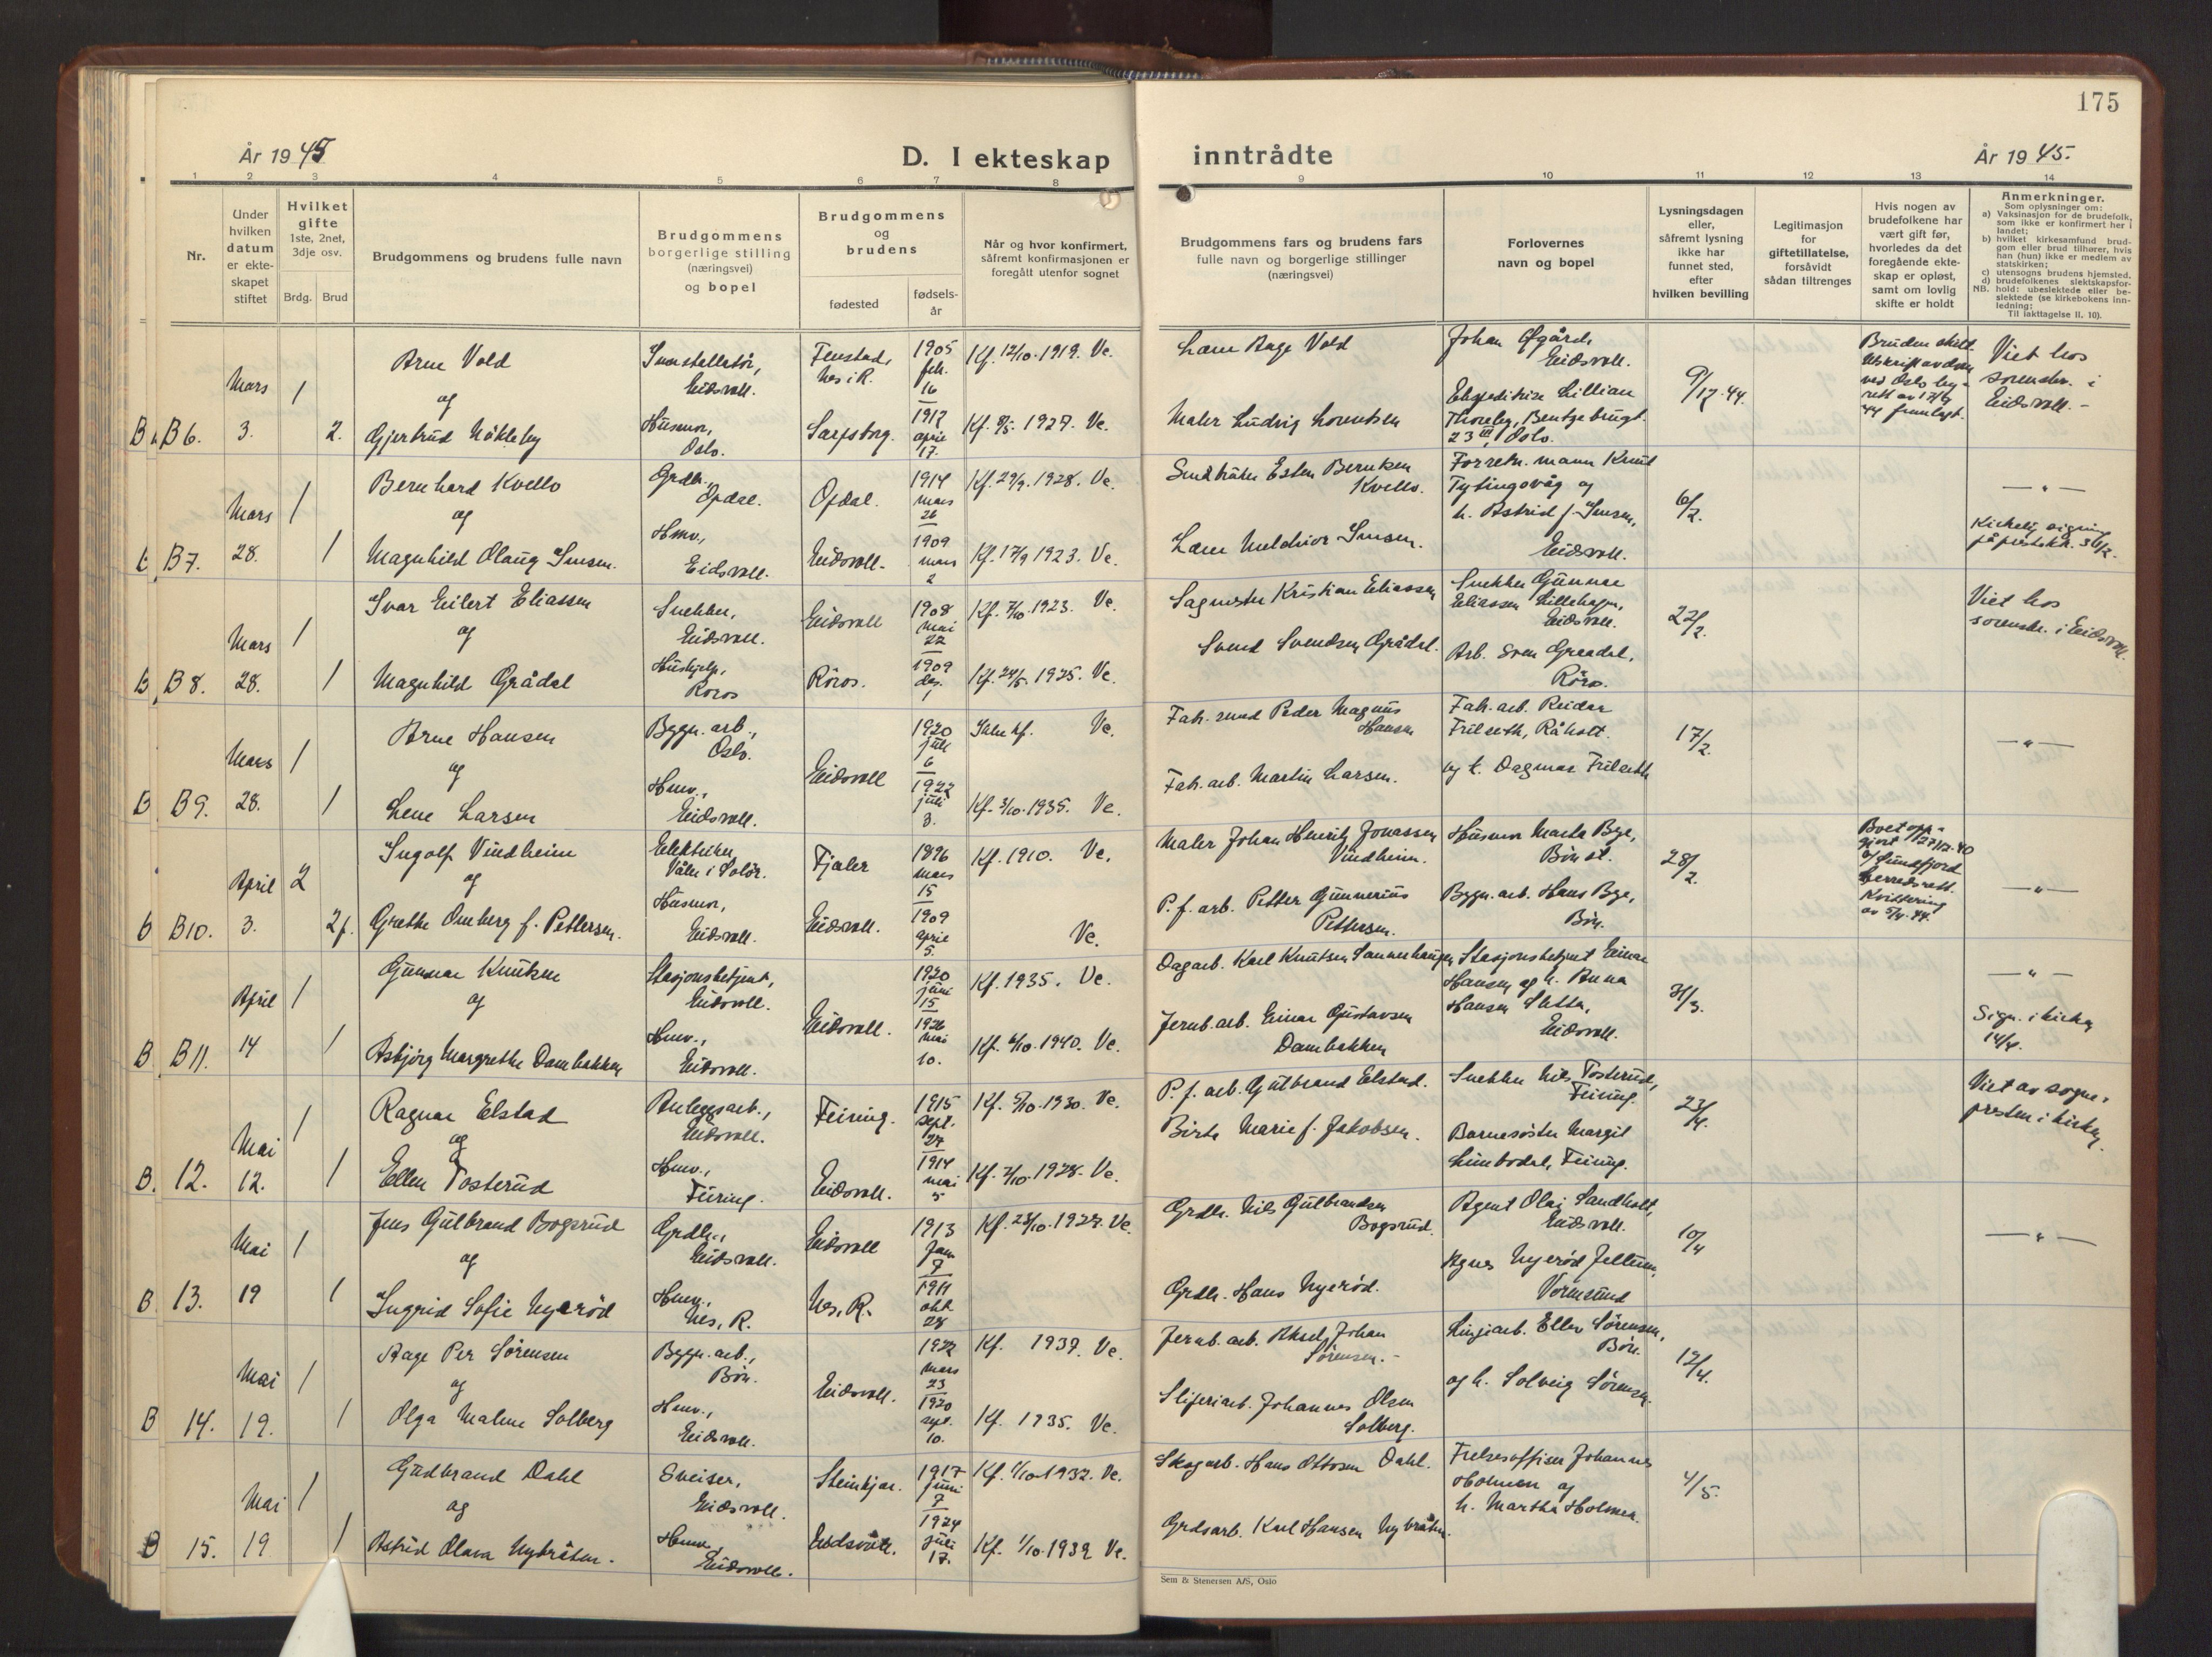 175
År 1945
D. I ekteskap
inntrådte
År 1945.
1
2
3
4
5
6
7
8
9
10
11
12
13
14
Nr.
Under
hvilken
datum
er ekte-
skapet
stiftet
Hvilket
gifte
1ste, 2net,
3dje osv.
Brdg.
Brud
Brudgommens og brudens fulle navn
Brudgommens
borgerlige stilling
(næringsvei)
og bopel
Brudgommens
og
brudens
fødested
fødsels-
år
Når og hvor konfirmert,
såfremt konfirmasjonen er
foregått utenfor sognet
Brudgommens fars og brudens fars
fulle navn og borgerlige stillinger
(næringsvei)
Forlovernes
navn og bopel
Lysningsdagen
eller,
såfremt lysning
ikke har
funnet sted,
efter
hvilken bevilling
Legitimasjon
for
giftetillatelse,
forsåvidt
sådan tiltrenges
Hvis nogen av
brudefolkene har
vært gift før,
hvorledes da det
foregående ekte-
skap er opløst,
samt om lovlig
skifte er holdt
Anmerkninger.
Som oplysninger om:
a) Vaksinasjon for de brudefolk,
som ikke er konfirmert her i
landet;
b) hvilket kirkesamfund brud-
gom eller brud tilhører, hvis
han (hun) ikke er medlem av
statskirken;
c) utensogns brudens hjemsted.
d) brudefolkenes slektskapsfor-
NB. hold: ubeslektede eller be-
slektede (se kirkebokens inn-
ledning;
Til iakttagelse II. 10).
B6.
Mars
3.
1
2.
Arne Vold
og
Gjertrud Nökleby
Eidsvoll.
Husmor,
Oslo.
Fenstad,
Nes i R.
Sarpsborg.
1905
feb.
16
1917
april
17.
Kf. 12/10.1919. Ve.
Kf. 8/5. 1927. Ve.
Lars Aage Vold
Maler Ludvig Lorentsen
Johan Øgård,
Eidsvoll.
Ekspeditrise Lillian
Thoreby, Bentsebrugt.
23 III, Oslo.
9/12.44.
Viet hos
sorenskr. i
Eidsvoll. -
B7.
Mars
28.
1
1
Bernhard Kvello
og
Magnhild Olaug Jensen.
Grdbr.,
Opdal.
Hmv.,
Eidsvoll.
Opdal.
Eidsvoll.
1914
mars
26
1909
mars
2
Kf. 29/9. 1928. Ve.
Kf. 17/9 1923. Ve.
Småbruker Esten Berntsen
Kvello.
Lars Meldvior Jensen.
Forretn. mann Knut
Tytingvåg og
h. Astrid f. Jensen,
Eidsvoll.
6/2.
- " -
Kirkelig signing
B8.
Mars
28.
1
1
Ivar Eilert Eliassen
og
Magnhild Grådal
Snekker,
Eidsvoll.
Hushjelp,
Röros
Eidsvoll
Röros.
1908
mai
22
1909
des.
1
Kf. 7/10. 1923. Ve.
Kf. 24/5. 1925. Ve.
Sagmester Kristian Eliassen
Svend Svendsen Grådal.
Snekker Gunnar
Eliassen Lillehagen,
Eidsvoll.
Arb. Sven Graadal,
Röros.
22/2.
Viet hos
sorenskr. i Eidsvoll.
B9.
Mars
28.
1
1
Arne Hansen
og
Lene Larsen
Bygn. arb.,
Oslo.
Hmv.,
Eidsvoll.
Eidsvoll
1920
juli
6
1922
juli
3.
Ikke kf. Ve.
Kf. 3/10. 1935. Ve.
Fab. smed Peder Magnus
Hansen
Fab. arb. Martin Larsen.
Fab. arb. Reidar
Frilseth, Råholt.
og h. Dagmar Frilseth
17/2.
- " -
B10.
April
3.
2
2f.
Ingolf Vindheim
og
Grethe Omberg f. Pettersen.
Elektriker
Våler i Solör.
Husmor,
Eidsvoll.
Fjaler
Eidsvoll.
1896
mars
15
1909
april
5.
Kf. 1910. Ve.
Ve.
Maler Johan Henrik Jonassen
Vindheim.
P. f. arb. Petter Gunnerius
Pettersen.
Husmor Marta Bye,
Bön st.
Bygn. arb. Hans Bye,
Bön.
28/2.
Boet opp-
gjort 27/12.40
v/ Sunnfjord
herredsrett.
Kvittering
av 5/4.44.
- " -
B11.
April
14
1
1
Gunnar Knutsen
og
Asbjörg Margrethe Dambakken
Stasjonsbetjent,
Eidsvoll.
Hmv.,
Eidsvoll.
Eidsvoll.
1920
juni
15
1926
mai
10.
Kf. 1935. Ve.
Kf. 6/10. 1940. Ve.
Dagarb. Karl Knutsen Sannerhaugen
Jernb. arb. Einar Gustavsen
Dambakken
Stasjonsbetjent Einar
Hansen og h. Anna
Hansen Sletta,
Eidsvoll.
31/3.
- " -
Sign. i kirken
14/4.
12.
Mai
12.
1
1
Ragnar Elstad
og
Ellen Tosterud
Anleggsarb.,
Eidsvoll.
Hmv.,
Feiring.
Feiring.
Eidsvoll.
1915
sept.
27
1914
mai
5
Kf. 5/10. 1930. Ve.
Kf. 7/10. 1928. Ve.
P. f. arb. Gulbrand Elstad.
Birte Marie f. Jakobsen.
Snekker Nils Tosterud,
Feiring.
Barnesöster Margit
Feiring.
23/4.
Viet av sogne-
presten i kirken.
13.
Mai
19
1
1
Jens Gulbrand Bogsrud
og
Ingrid Sofie Nyeröd
Grdbr.,
Eidsvoll.
Hmv.,
Nes, R.
Eidsvoll
Nes, R.
1913
Jan
7
1911
okt
28
Kf. 23/10. 1927. Ve
Grdbr. Nils Gulbrandsen
Bogsrud.
Grdbr. Hans Nyeröd.
Agent Olaj Sandholt,
Eidsvoll.
Agnes Nyeröd Jellum,
Vormsund
10/4
- " -
14.
Mai
19.
1
1
Aage Per Sörensen
og
Olga Malene Solberg
Bygn. arb.,
Bön.
Hmv.,
Eidsvoll.
Eidsvoll.
1922
mars
23
1920
sept.
10.
Kf. 1937. Ve.
Kf. 1935. Ve.
Jernb. arb. Aksel Johan
Sörensen. -
Sliperiarb. Johannes Olsen
Solberg.
Linjearb. Ellev Sörensen,
Bön.
og h. Solveig Sörensen.
12/4.
15.
Mai
19
1
1
Gudbrand Dahl
og
Astrid Olava Nybråten.
Sveiser,
Eidsvoll.
Hmv.,
Eidsvoll.
Steinkjer.
Eidsvoll.
1917
juni
7
1924
juli
17.
Kf. 1/10 1932. Ve.
Kf. 1/10. 1939. Ve.
Skogarb. Hans Ottosen Dahl.
Grdsarb. Karl Hansen Nybråten.
Frelsesoffiser Johannes
Holmen og
h. Martha Holmen.
4/5.
Sem & Stenersen A/S, Oslo